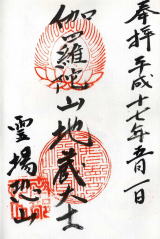 奉拝 平成十七年五月一日
伽羅陀山地蔵大士
霊場恐山